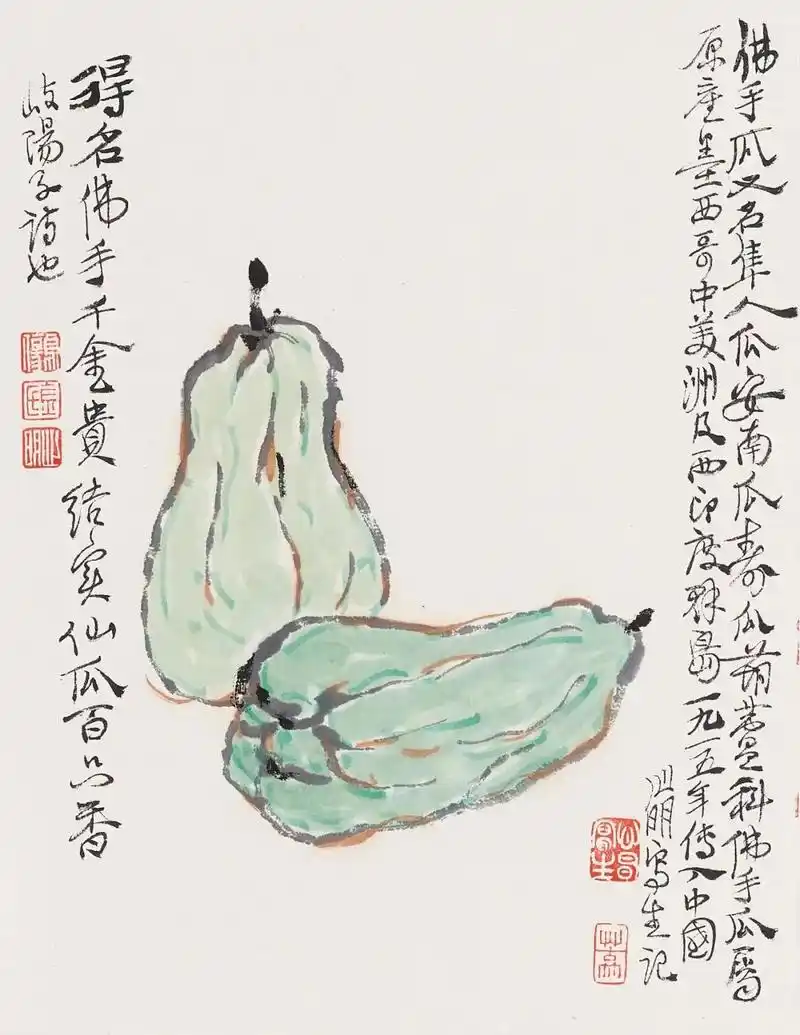 佛手瓜又名隼人瓜安南瓜寿瓜葫芦科佛手瓜属
原産墨西哥中美洲及西印度群島一九一五年传入中國
明写生记
得名佛手千金貴结实仙瓜百只香
岐陽子诗也